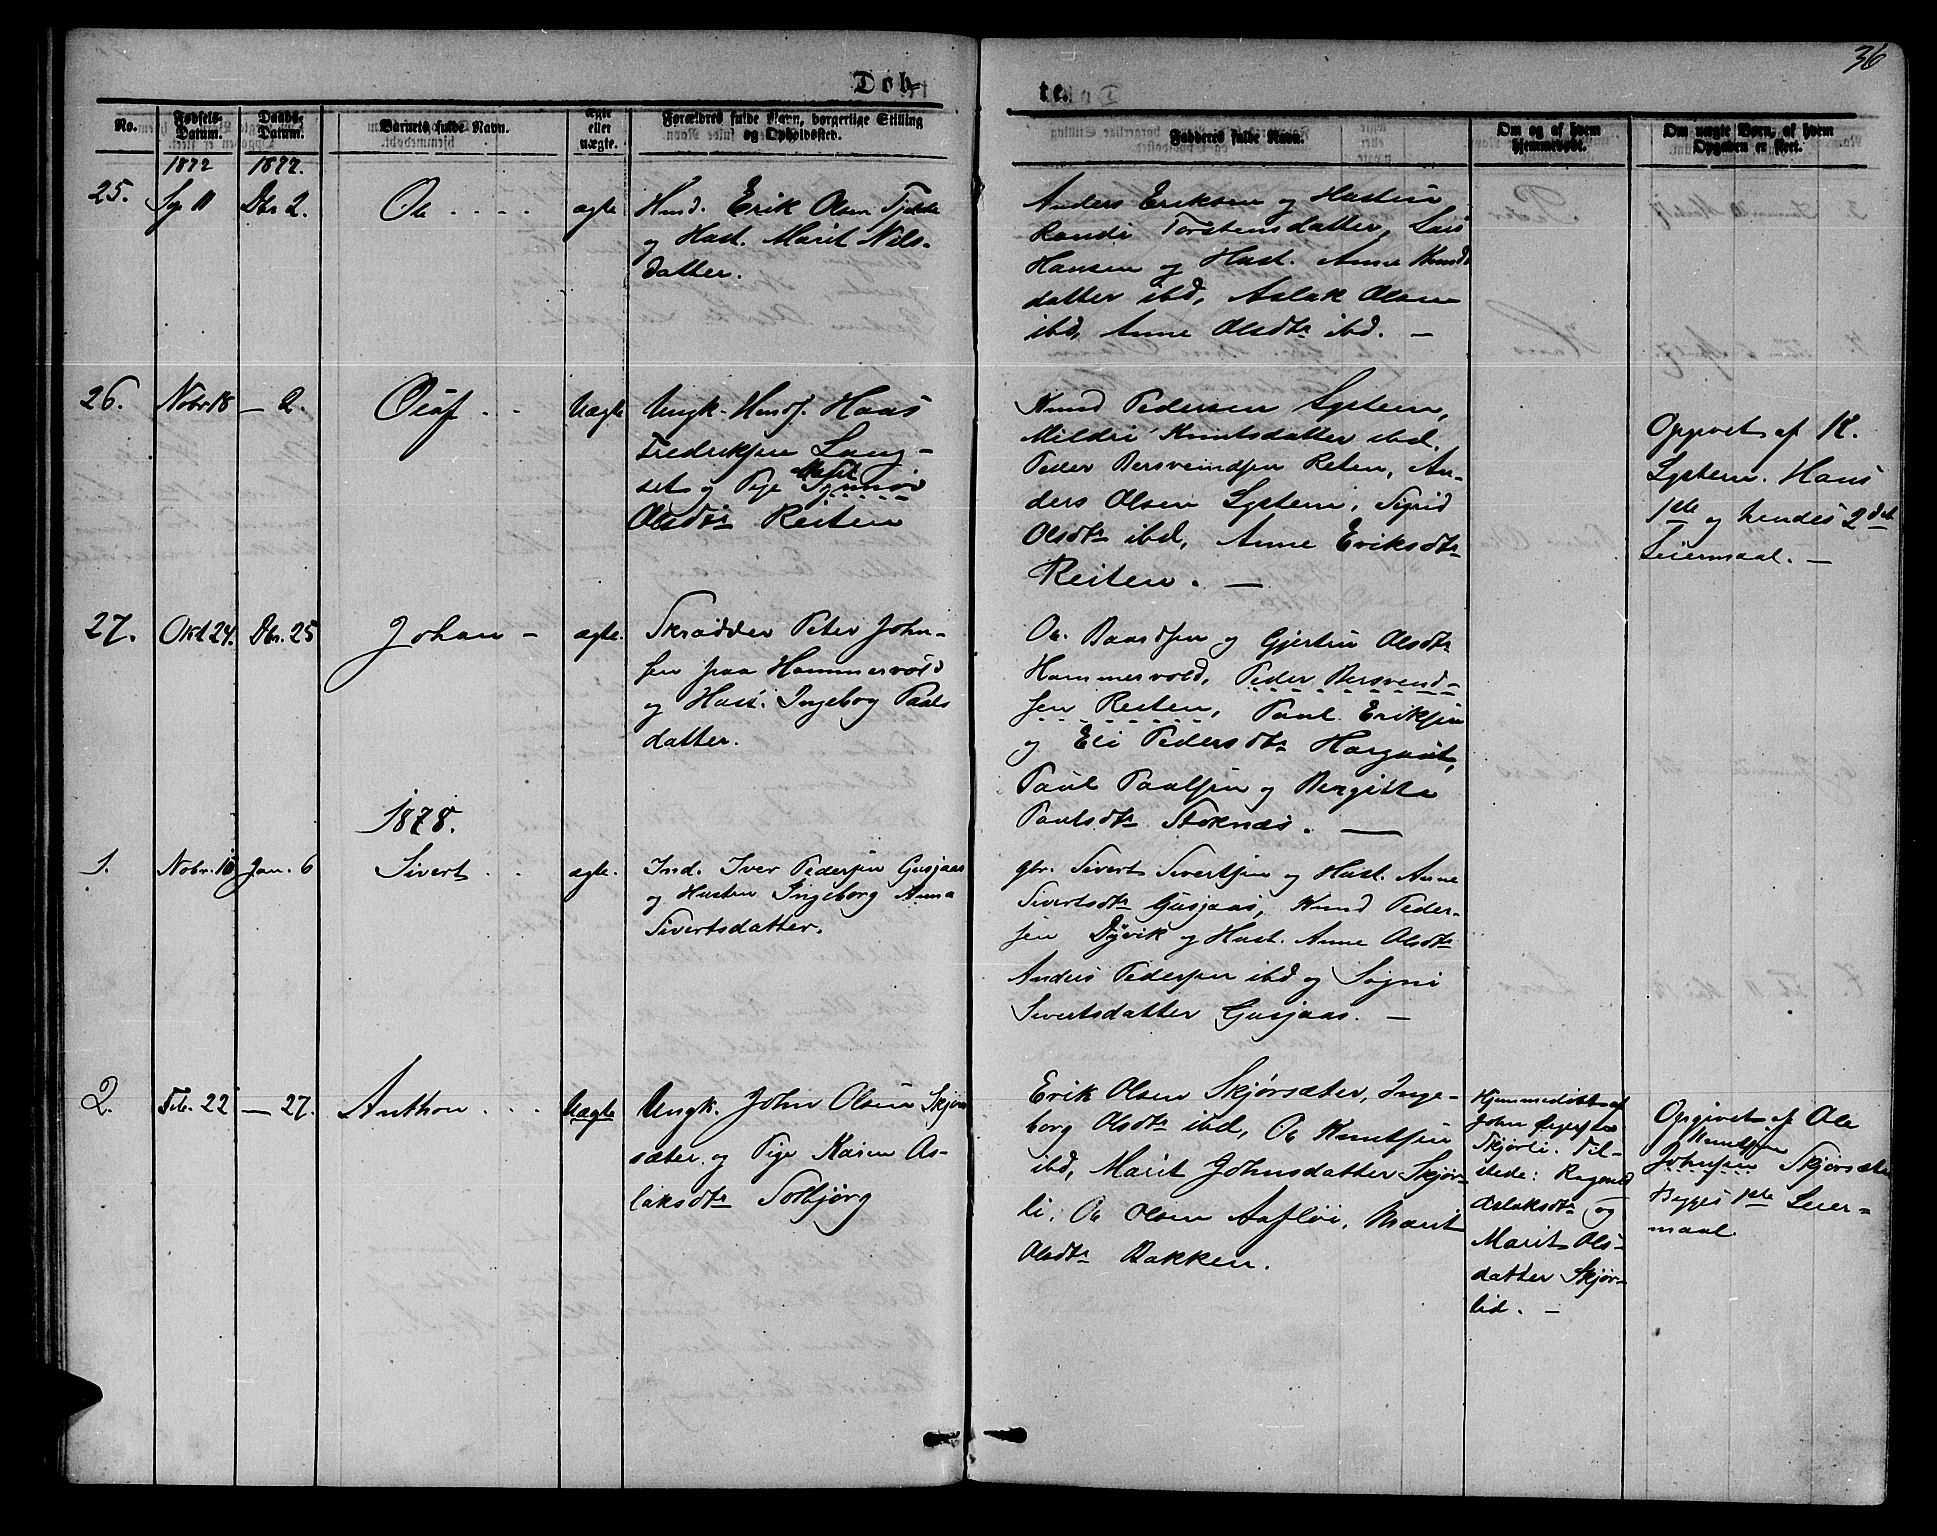 36
Døb-
te.
No.
Fødsels-
Datum.
Daabs-
Datum.
Barnets fulde Navn.
Ægte
eller
uægte.
Forældres fulde Navn, borgerlige Stilling
og Opholdssted.
Fadderes fulde Navn.
Om og af hvem
hjemmedøbt.
Om uægte Børn, af hvem
Opgaven er skeet.
1877
1877.
25.
Sep 11
Dbr 2.
Ole
ægte
Husm. Erik Olsen Fjelde
og Hust. Marit Nils-
datter.
Anders Eriksen og Hustru
Randi Torstensdatter, Lars
Hansen og Hust. Anne Knuds
datter ibd, Aslak Olsen
ibd, Anne Olsdtr ibd. —
26.
Nobr 18
— 2.
Oluf
Uægte
Ungk. Husmf. Hans
Fredriksen Lang-
set og Pige Marit Synnøv
Olsdtr Reiten
Knud Pedersen System,
Mildri Knutsdatter ibd.
Peder Bersveindsen Reten, An-
ders Olsen Systemi, Sigrid
Olsdtr ibd, Anne Eriksdtr
Reiten. —
Opgivet af K.
Systern. Hans
1ste og hendes 2det
Leiermaal. —
27.
Okt 24.
Dbr. 25
Johan —
ægte.
Skrædder Peter John-
sen paa Hammervold
og Hust. Ingeborg Paals
datter.
Ole Baardsen og Gjertru Olsdtr
Hammervold, Peder Bersvend-
sen Resten, Paul Eriksen
og Eli Pedersdtr Hargaut,
Paul Paalsen og Bergitta
Paulsdtr Stoknæs. —
1878.
1.
Nobr. 18
Jan. 6
Sivert
ægte.
Ind. Iver Pedersen Gusjaas
og Hustru Ingeborg Anna
Sivertsdatter.
gbr. Sivert Sivertsen og Hust. Anne
Sivertsdtr Gusjaas, Knud Peder-
sen Dyvik og Hust. Anne Olsdtr
Anders Pedersen ibd og Signi
Sivertsdatter Gusjaas. —
2.
Feb. 22
— 27.
Anthon
Uægte
Ungk. John Olsen Skjør
sæter og Pige Karen As-
laksdtr Solbjørg
Erik Olsen Skjørsæter, Inge-
borg Olsdtr ibd, Ole Knutsen
ibd, Marit Johnsdatter Skjør-
li, Ole Olsen Aafløi, Marit
Olsdtr Bakken.
Hjemmedøbt af
John
Skjørli. Til-
stede: Ragnild
Aslaksdtr og
Marit Ols-
datter Skjør-
lid. —
Opgivet af Ole
Knutsen
Johnsen Skjørsæter
Begges 1ste Leier-
maal.